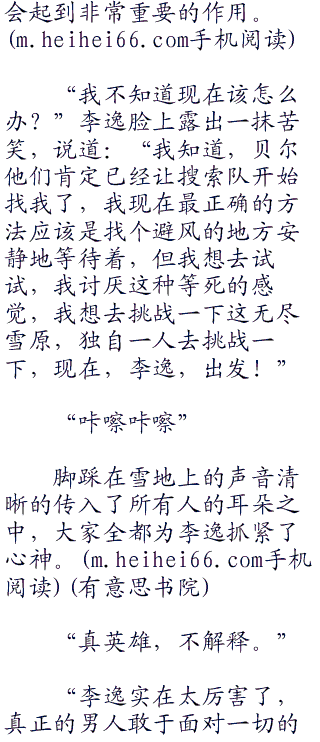 会起到非常重要的作用。
(m.heihei66.com手机阅读)
“我不知道现在该怎么
办？”李逸脸上露出一抹苦
笑，说道：“我知道，贝尔
他们肯定已经让搜索队开始
找我了，我现在最正确的方
法应该是找个避风的地方安
静地等待着，但我想去试
试，我讨厌这种等死的感
觉，我想去挑战一下这无尽
雪原，独自一人去挑战一
下，现在，李逸，出发！”
“咔嚓咔嚓”
脚踩在雪地上的声音清
晰的传入了所有人的耳朵之
中，大家全都为李逸抓紧了
心神。(m.heihei66.com手机
阅读)(有意思书院)
“真英雄，不解释。”
“李逸实在太厉害了，
真正的男人敢于面对一切的